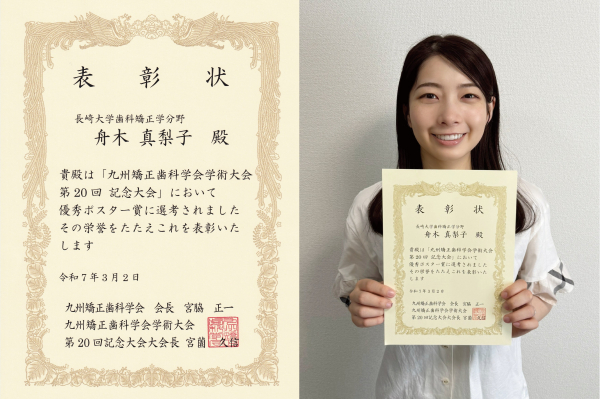 表彰状
長崎大学歯科矯正学分野
舟木 真梨子 殿
貴殿は「九州矯正歯科学会学術大会
第20回 記念大会」において
優秀ポスター賞に選考されました
その栄誉をたたえこれを表彰いた
します
令和7年3月2日
九州矯正歯科学会 会長 宮脇 正一
九州矯正歯科学会学術大会
第20回記念大会大会長 宮薗 久信
表彰状
長崎大学歯科矯正学分野
舟木 真梨子 殿
貴殿は「九州矯正歯科学会学術大会
第20回 記念大会」において
優秀ポスター賞に選考されました
その栄誉をたたえこれを表彰いた
します
令和7年3月2日
九州矯正歯科学会 会長 宮脇 正一
九州矯正歯科学会学術大会
第20回記念大会大会長 宮薗 久信